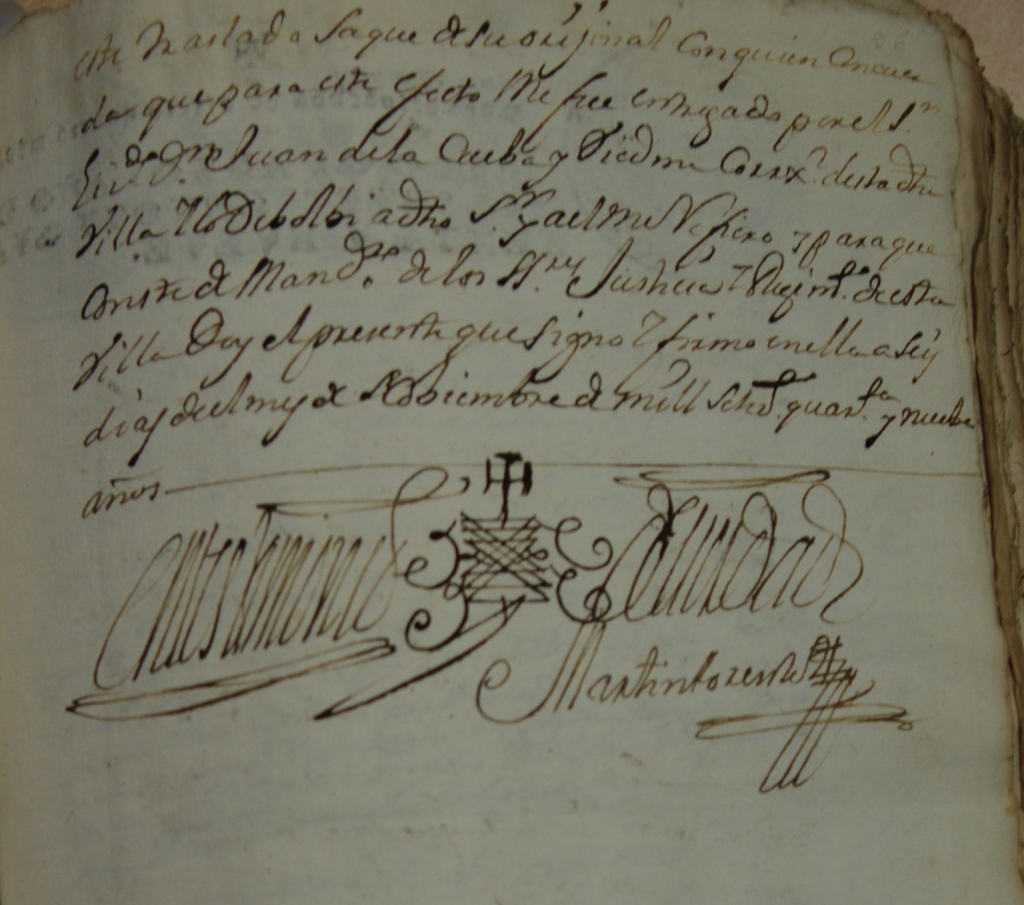 este traslado saque de su orijinal con quien concuer
da que para este efecto me fue entregado por el S.r
Liz.do Dn Juan de la Cueba y Piedma Corrx.r desta dha
Villa Y lo debolbi a dho S.r y a el me Refiero y para que
conste de Mand.to de los SS.res Justicia Y Rejim.to de esta
Villa Doy el presente que signo Y firmo en ella a seis
dias del mes de Nobiembre de mill Setez.s quar.ta y nuebe
años
En testimonio de verdad
Martin Lorente